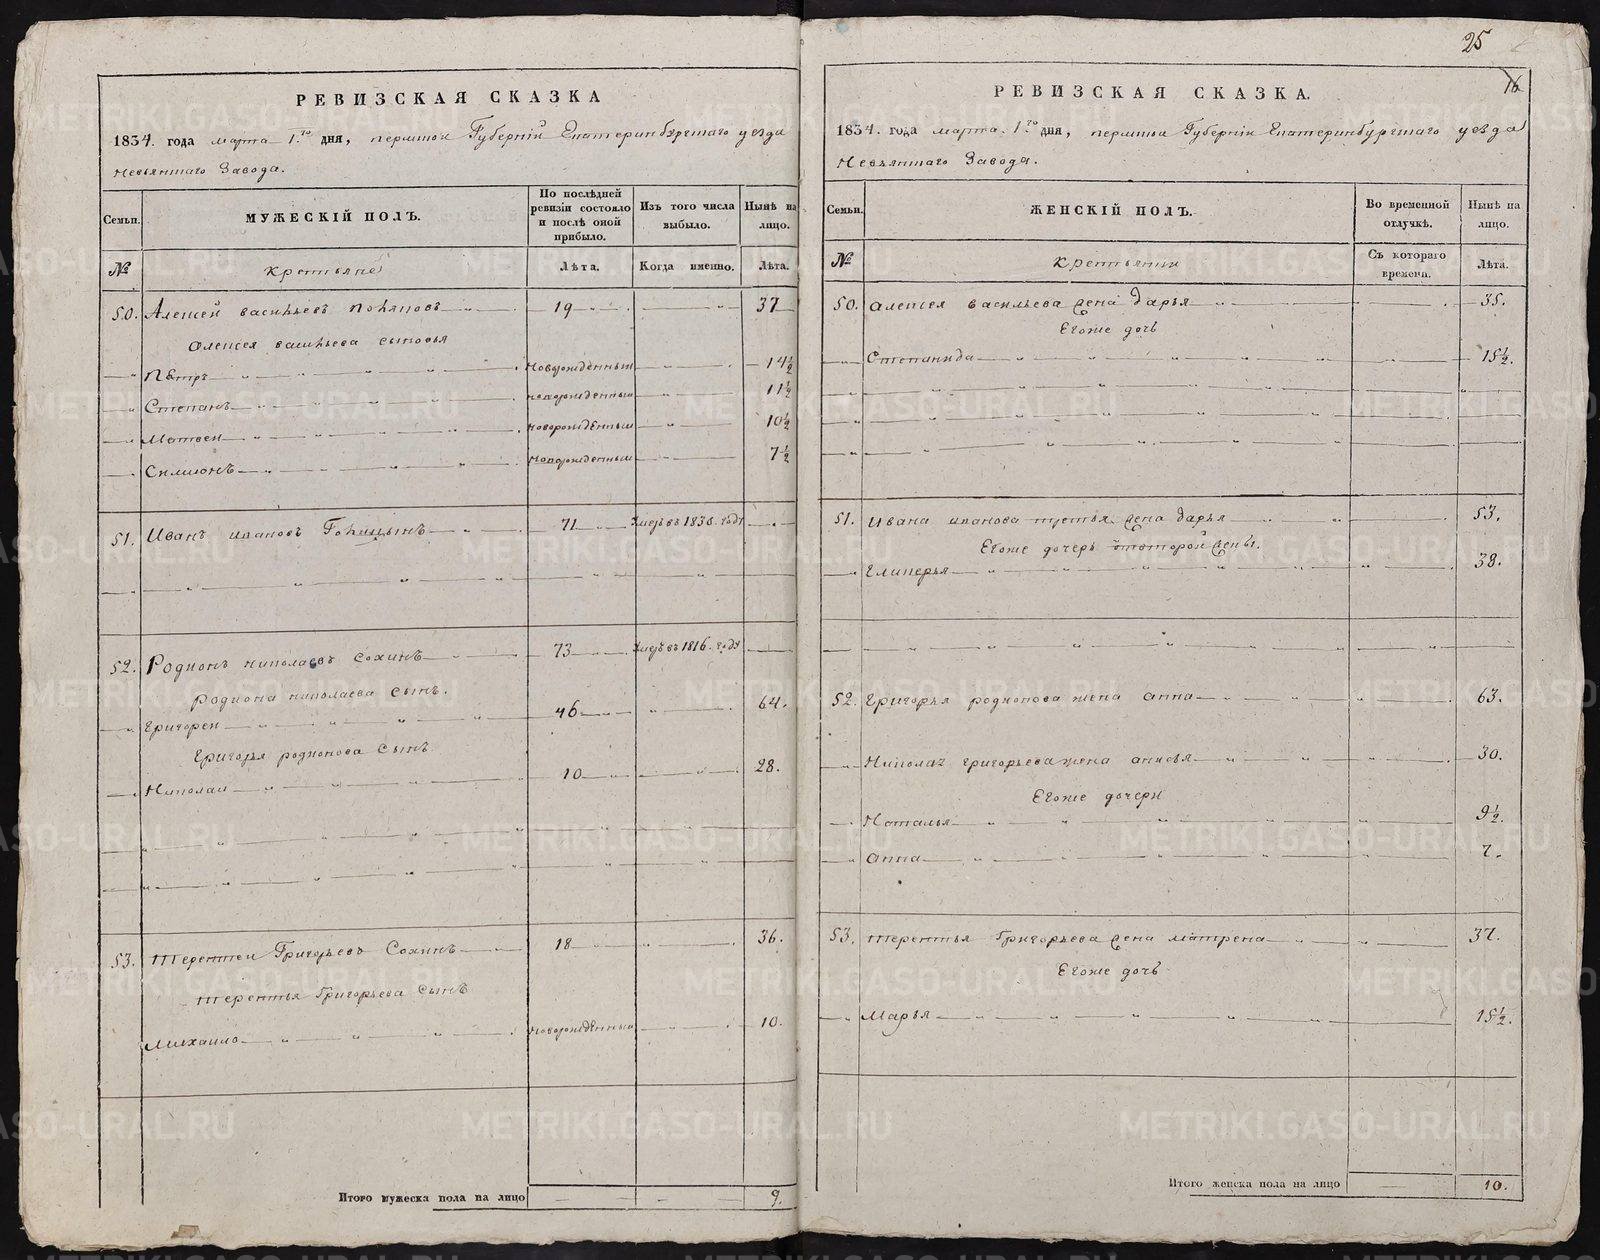 25
16
РЕВИЗСКАЯ СКАЗКА
1834. года марта 1го дня, пермской Губерніи Екатеринбургскаго уезда
Невьянскаго Завода.
Семьи.
МУЖЕСКІЙ ПОЛЪ.
По послѣдней ревизіи состояло и послѣ оной прибыло.
Изъ того числа выбыло.
Нынѣ на лицо.
№
крестьяне
Лѣта.
Когда именно.
Лѣта.
50. Алексей васильевъ 19 37
Алексея васильева сыновья
Пётръ новорожденный 14½
Степанъ новорожденный 11½
Матвей новорожденный 10½
Симионъ новорожденный 7½
51. Иванъ ивановъ Голицынъ 71 въ 1830. году
52. Родионъ николаевъ Сохинъ 73 въ 1816. году
Родиона николаева сынъ.
Григорей 46 64.
Григорья родионова сынъ
Николай 10 28.
53. Терентей Григорьевъ Сохинъ 18 36.
Терентья Григорьева сынъ
Михайло новорождённый 10.
Итого мужеска пола на лицо 9.
РЕВИЗСКАЯ СКАЗКА.
1834. года марта 1го дня, пермской Губерніи Екатеринбургскаго уезда
Невьянскаго Завода.
Семьи.
ЖЕНСКІЙ ПОЛЪ.
Во временной отлучкѣ.
Нынѣ на лицо.
№
крестьянки
Съ котораго времени.
Лѣта.
50. Алексея васильева жена дарья 35.
Егоже дочь
Степанида 15½.
51. Ивана иванова третья жена дарья 53.
Егоже дочерь отвторой жены.
Гликерья 38.
52. Григорья родионова жена анна 63.
Николая григорьева жена анисья 30.
Егоже дочери
Наталья 9½.
анна 7.
53. Терентья Григорьева жена матрена 37.
Егоже дочь
Марья 15½.
Итого женска пола на лицо 10.
METRIKI.GASO-URAL.RU